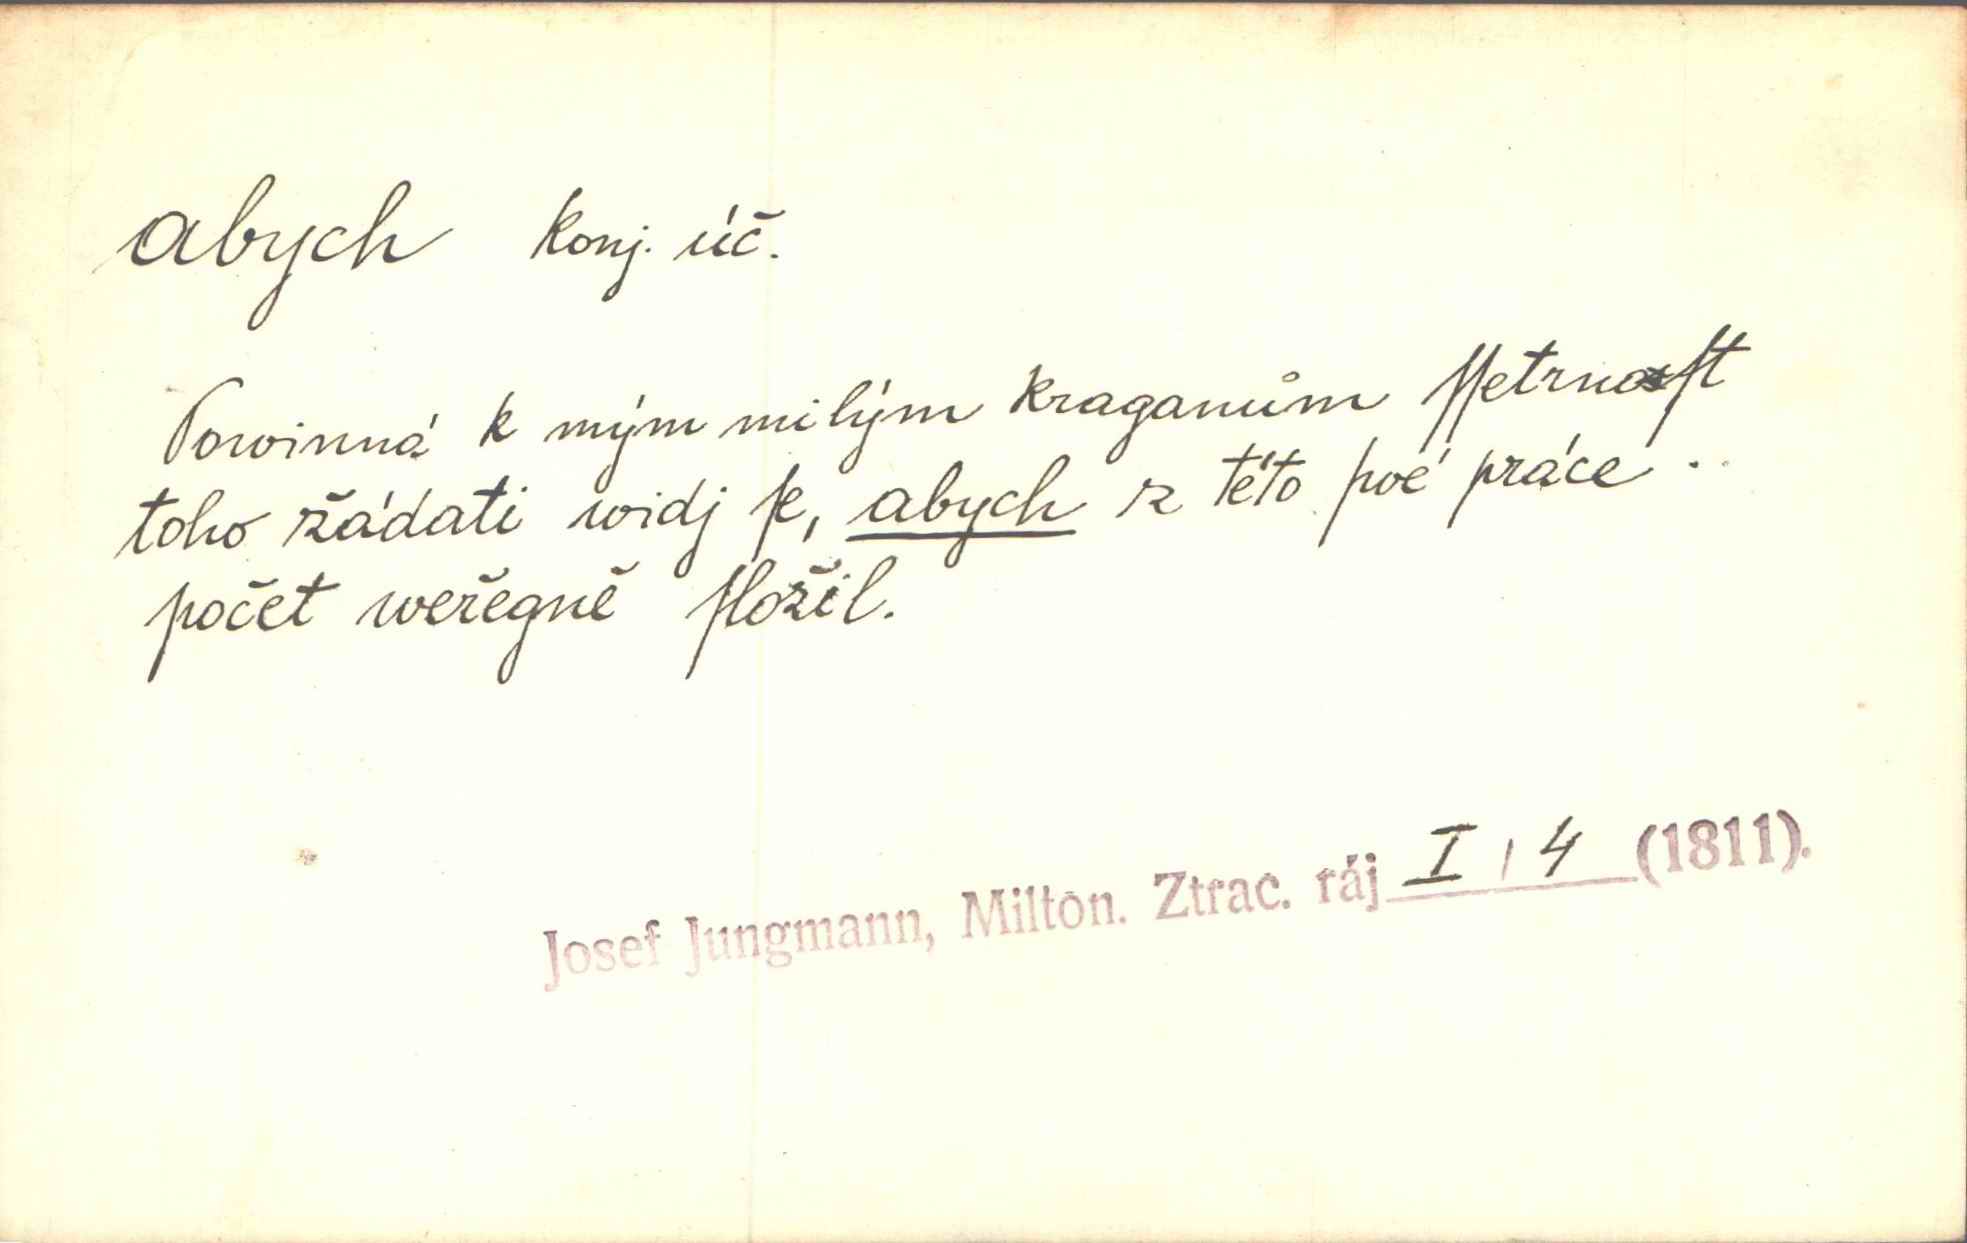 abych konj. úč.
Powinná k mým milým kraganům ſſetrnoſt
toho žádati widj ſe, abych z této ſwé práce ..
počet weřegně ſložil.
Josef Jungmann, Milton. Ztrac. ráj I, 4 (1811).